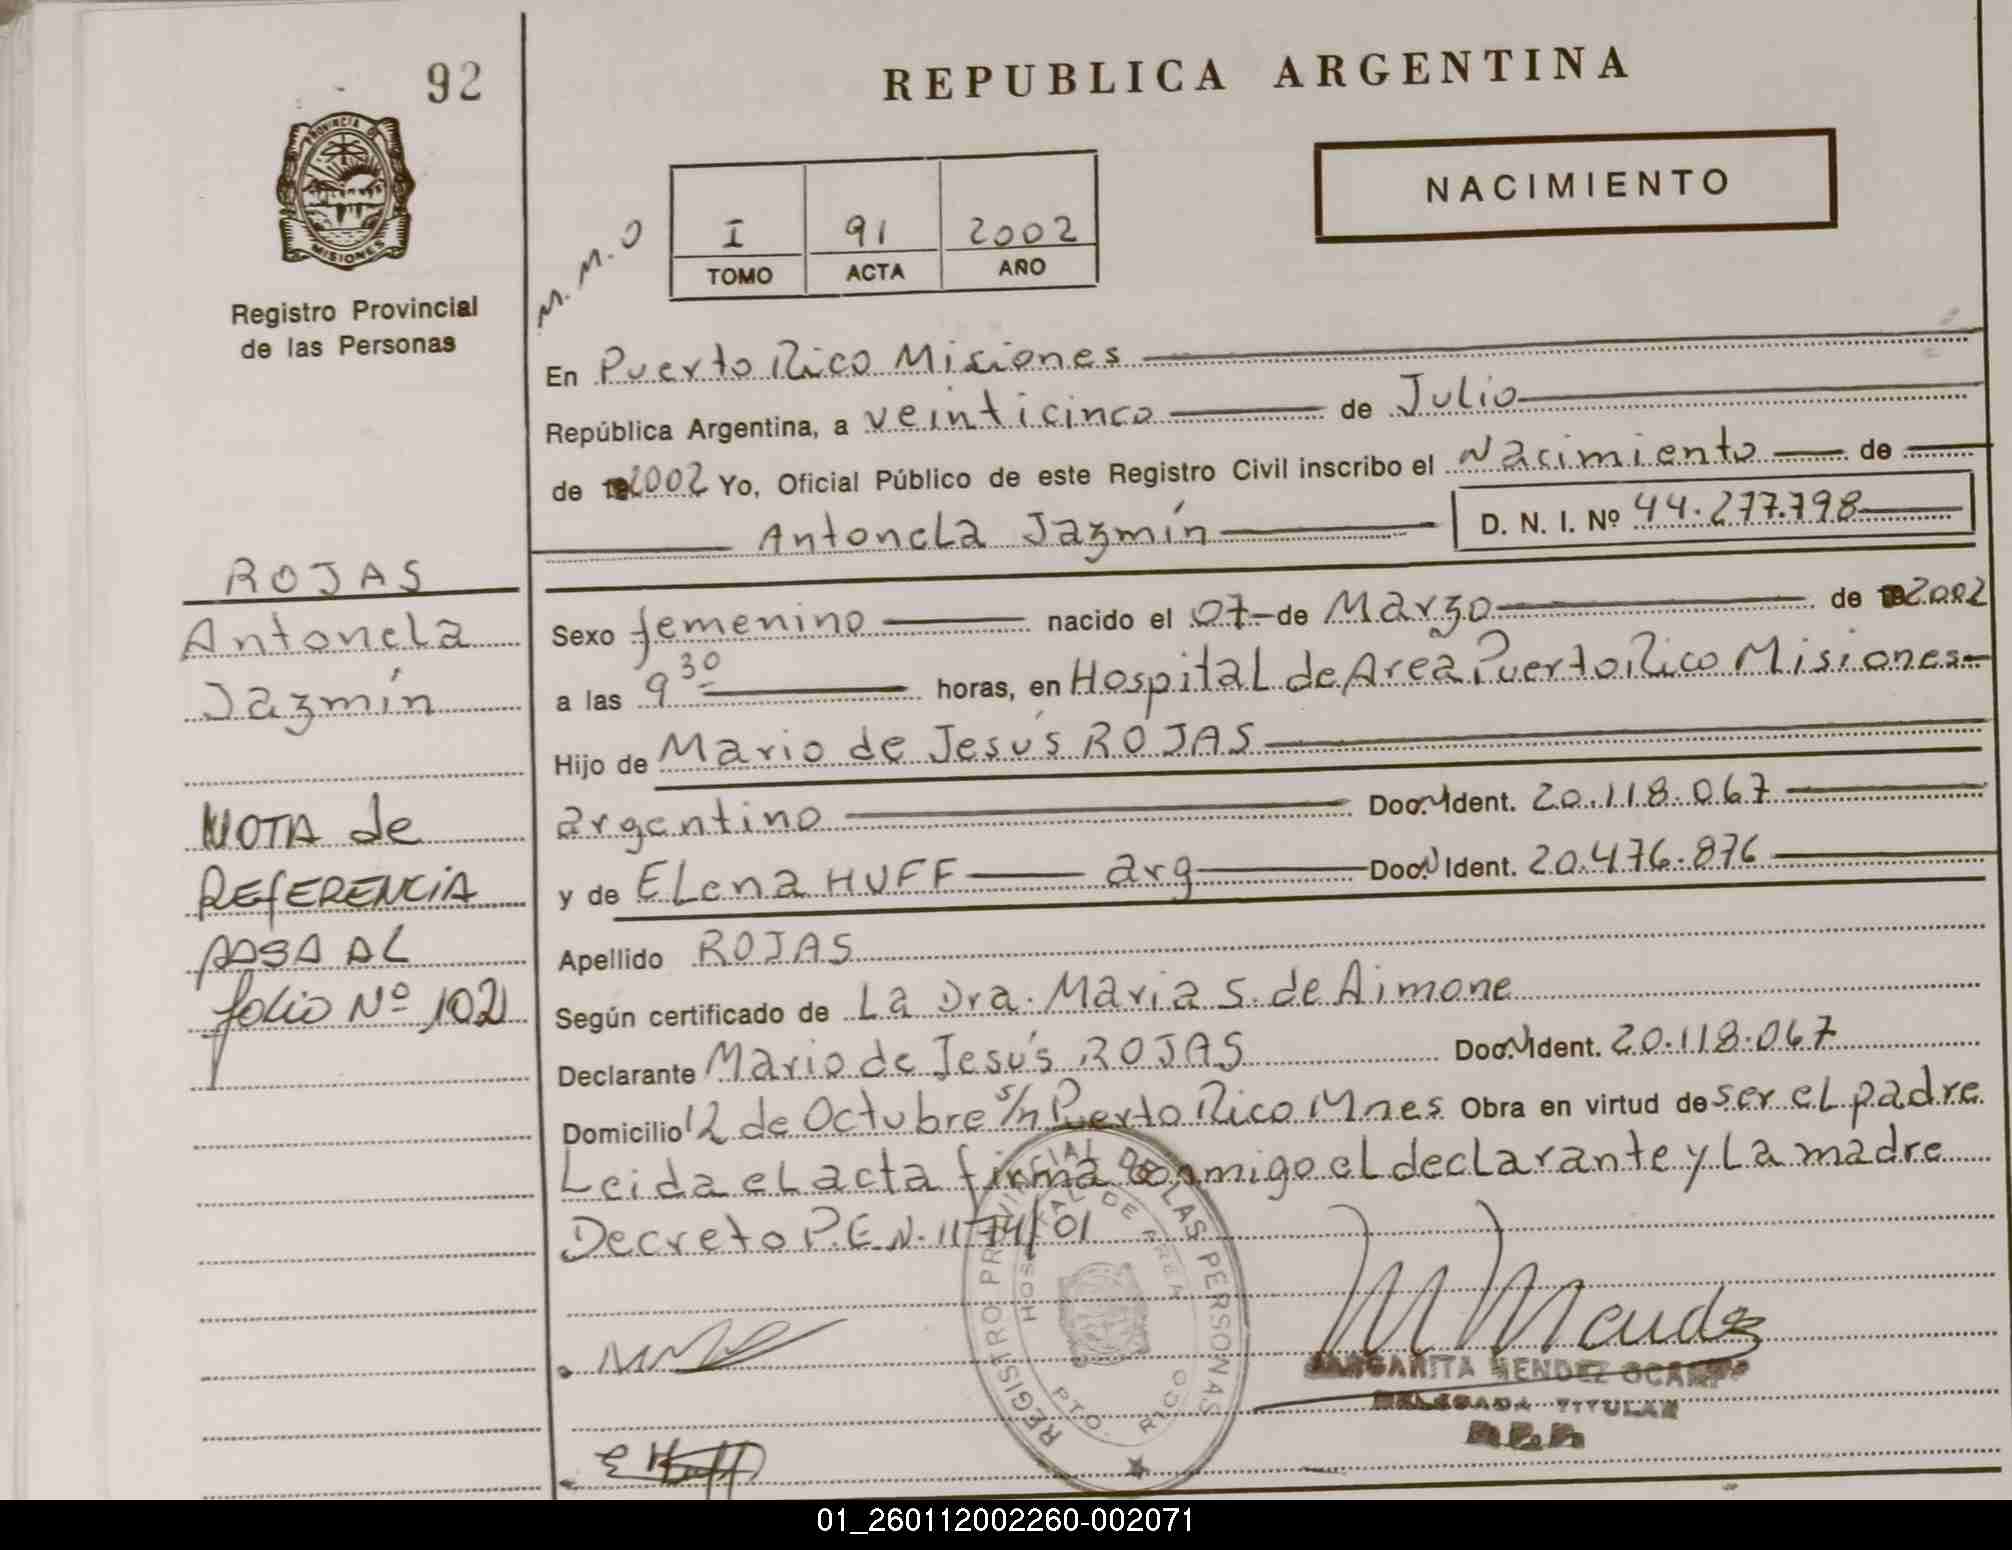 92
REPUBLICA ARGENTINA
PROVINCIA D
MISIONES
Registro Provincial
de las Personas
NACIMIENTO
M.M.O
I 91 2002
TOMO ACTA AÑO
En Puerto Rico Misiones
República Argentina, a veinticinco de Julio
de 2002 Yo, Oficial Público de este Registro Civil inscribo el Nacimiento de
Antonela Jazmín D. N. I. Nº 44.277.798
ROJAS
Antonela
Jazmín
Sexo femenino nacido el 07 de Marzo de 2002
a las 9 30 horas, en Hospital de Area Puerto Rico Misiones
Hijo de Mario de Jesús ROJAS
argentino Doc. Ident. 20.118.067
y de ELena HUFF arg Doc. Ident. 20.476.876
NOTA de
REFERENCIA
PASA AL
folio Nº 102
Apellido ROJAS
Según certificado de La Dra. Maria S. de Aimone
Declarante Mario de Jesús ROJAS Doc. Ident. 20.118.067
Domicilio 12 de Octubre s/n Puerto Rico Mnes Obra en virtud de ser el padre
Leida el acta firma conmigo el declarante y La madre
Decreto P.E.N. 1174/01
REGISTRO PROVINCIAL DE LAS PERSONAS
HOSPITAL DE AREA
PTO. RICO
M Mendez
MARGARITA MENDEZ OCAMPO
DELEGADA TITULAR
E Huff
01_260112002260-002071